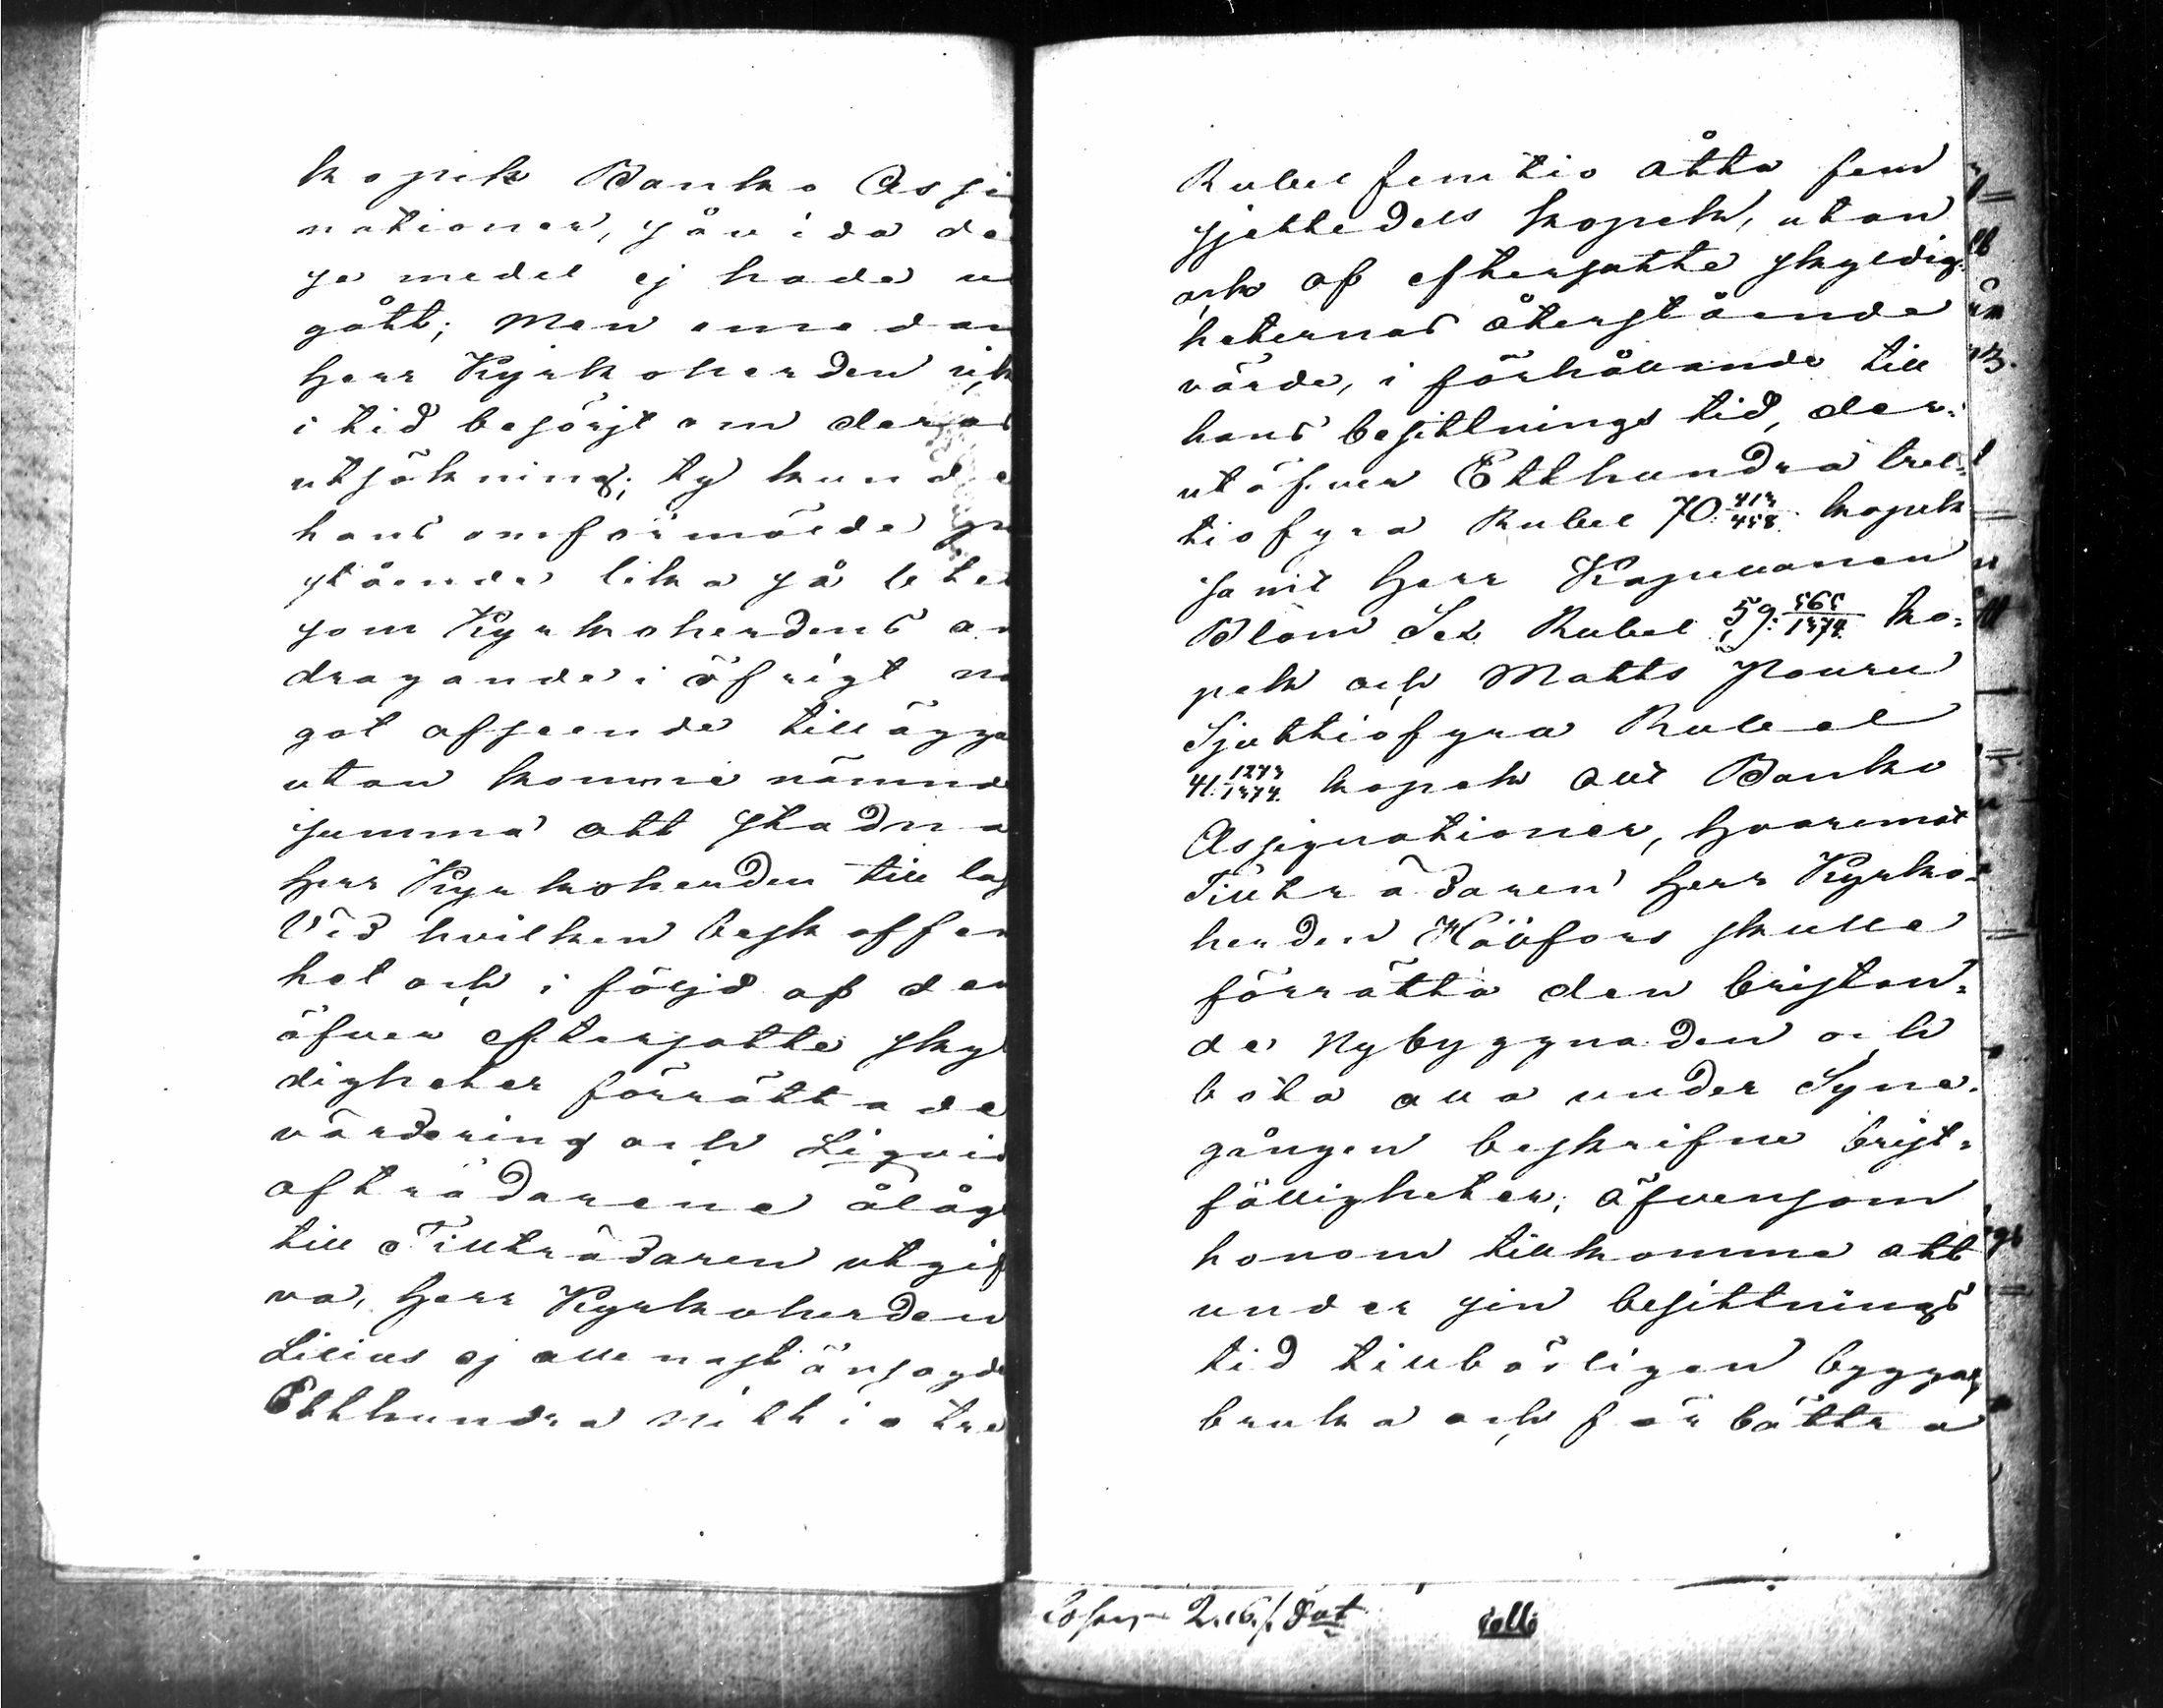 kopek Banko Assi
nationer, såvida de
se medel ej hade u
gått; Men emedan
Herr Kyrkoherden ick
i tid besörjt om deras
utsökning; ty kunde
hans omförmälde
stående lika så lite
som Kyrkoherdens an
dragande i öfrigt nå
got afseende tilläggas
utan komme nämnde
summa att stadna
Herr Kyrkoherden till last
Vid hvilken beskaffen
het och i följd af den
öfver eftersatte skyl
digheter förrättade
värdering och Liqvid
afträdarene ålåg
till Tillträdaren utgif
va, Herr Kyrkoherden
Lilius ej allenast ofvansagde
Etthundra Nittio tre
Rubel femtio åtta fem
sjettedels kopek, utan
ock af eftersatte skyldig
heternas återstående
värde, i förhållande till
hans besittnings tid, der=
utöfver Etthundra tret=
tiofyra Rubel 70 413/458 kopek
samt Herr Kapellanen
Blom Sex Rubel 59: 565/1374 ko=
pek och Matts Pouru
Sjuttiofyra Rubel
41: 1273/1374 kopek allt Banko
Assignationer, hvaremot
Tillträdaren Herr Kyrko=
herden Hällfors skulle
förrätta den bristan=
de Nybyggnaden och
bota alla under Syne
gången beskrifne brist=
fälligheter; äfvensom
honom tillkomma att
under sin besittnings
tid tillbörligen bygga,
bruka och förbättra